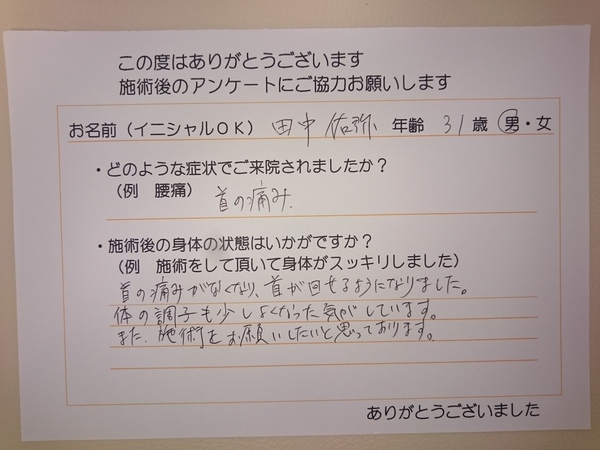 この度はありがとうございます
施術後のアンケートにご協力お願いします
お名前(イニシャルOK) 田中 佑弥 年齢 31歳 男・女
・どのような症状でご来院されましたか?
(例 腰痛) 首の痛み.
・施術後の身体の状態はいかがですか?
(例 施術をして頂いて身体がスッキリしました)
首の痛みがなくなり、首が回せるようになりました。
体の調子も少しよくなった気がしています。
また、施術をお願いしたいと思っております。
ありがとうございました